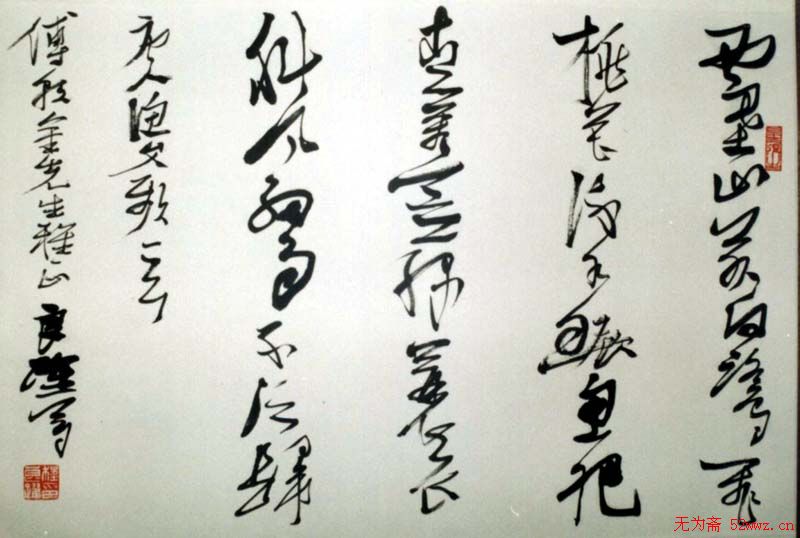 西塞山前白鷺飛
桃花流水鱖魚肥
青箬笠綠蓑衣
斜風細雨不須歸
唐人漁父歌一首
傅金先生雅正 良
无为斋 52wwz.cn